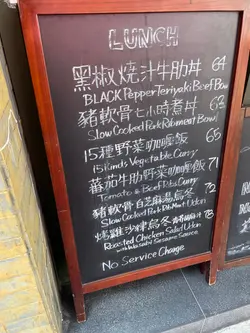 LUNCH
黑椒燒汁牛肋丼 64
BLACK Pepper Teriyaki Beef Bowl
豬軟骨七小時煮丼 68
Slow Cooked Pork Rib meat Bowl
15種野菜咖喱飯 65
15 kinds Vegetable Curry
蕃茄牛肋野菜咖喱飯 71
Tomato & Beef Ribs Curry
豬軟骨白芝麻湯烏冬 72
Slow Cooked Pork Rib Meat Udon
烤雞沙律烏冬 78
Roasted Chicken Salad Udon
with Wasabi Sesame Sauce
No Service Charge